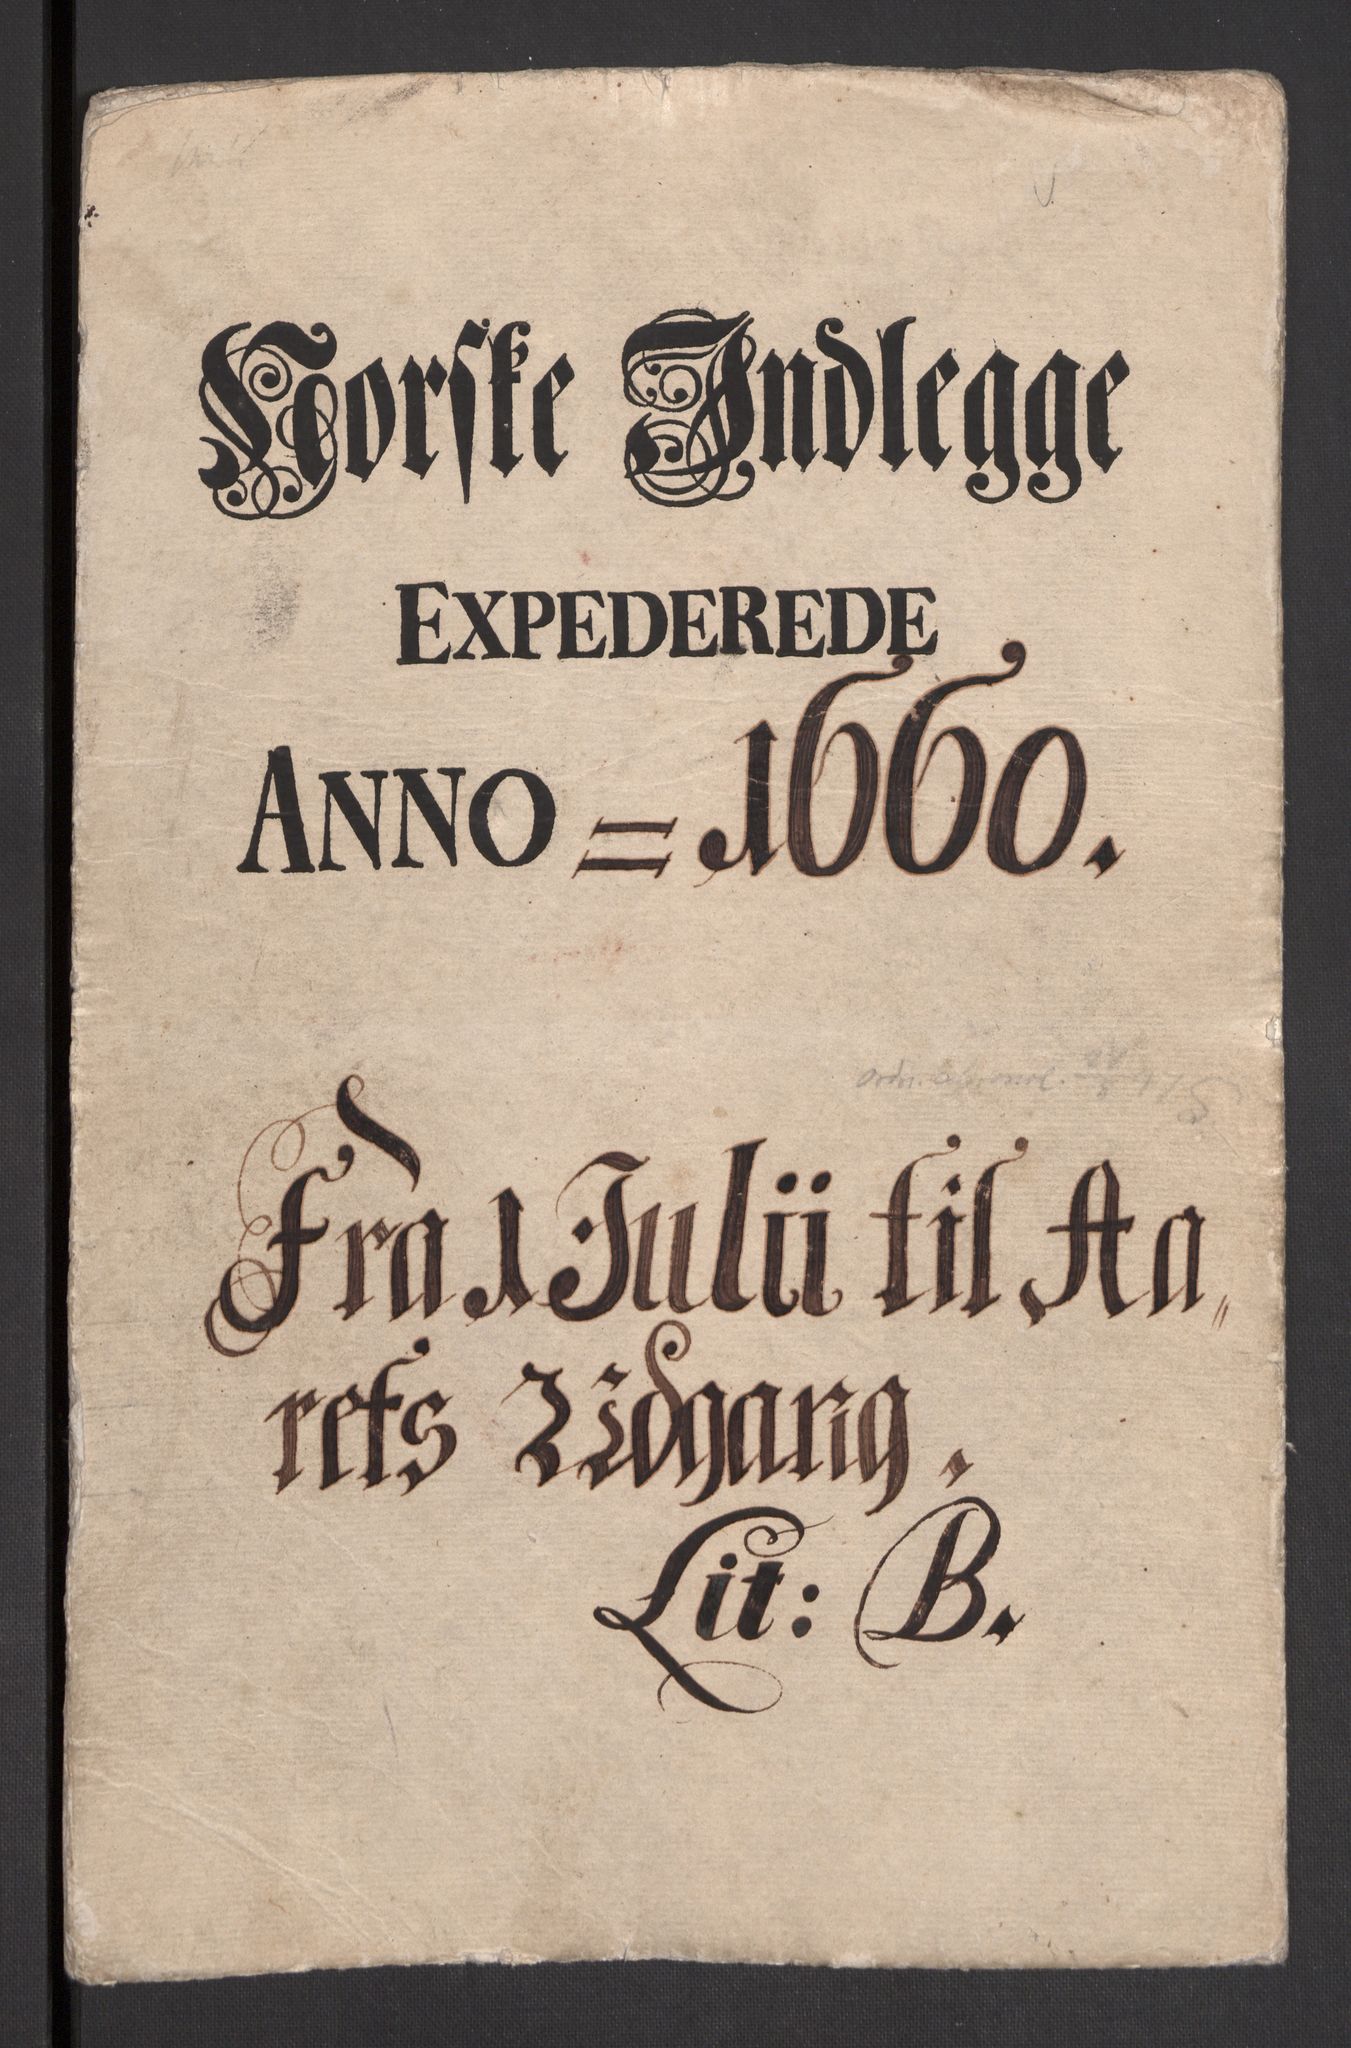 Norske Indlegge
EXPEDEREDE
ANNO = 1660.
Fra 1 Julii til Aa„
rets Udgang.
Lit: B.